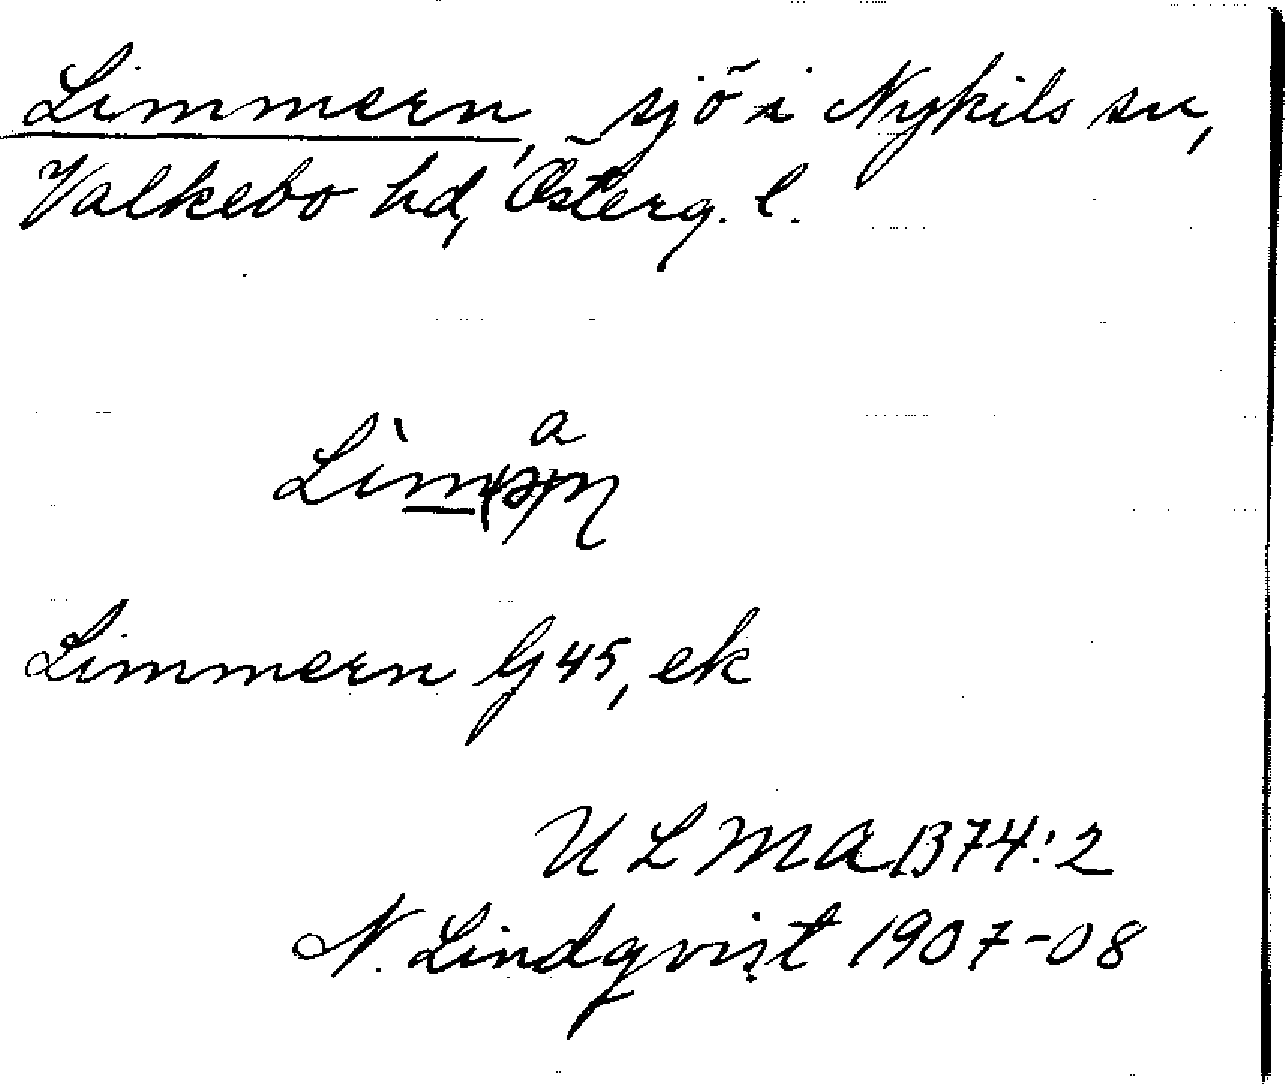 Limmern, sjö i Nykils sn,
Valkebo hd, Österg. l.
a
Limmern G 45, ek
ULMA B74:2
N. Lindqvist 1907-08